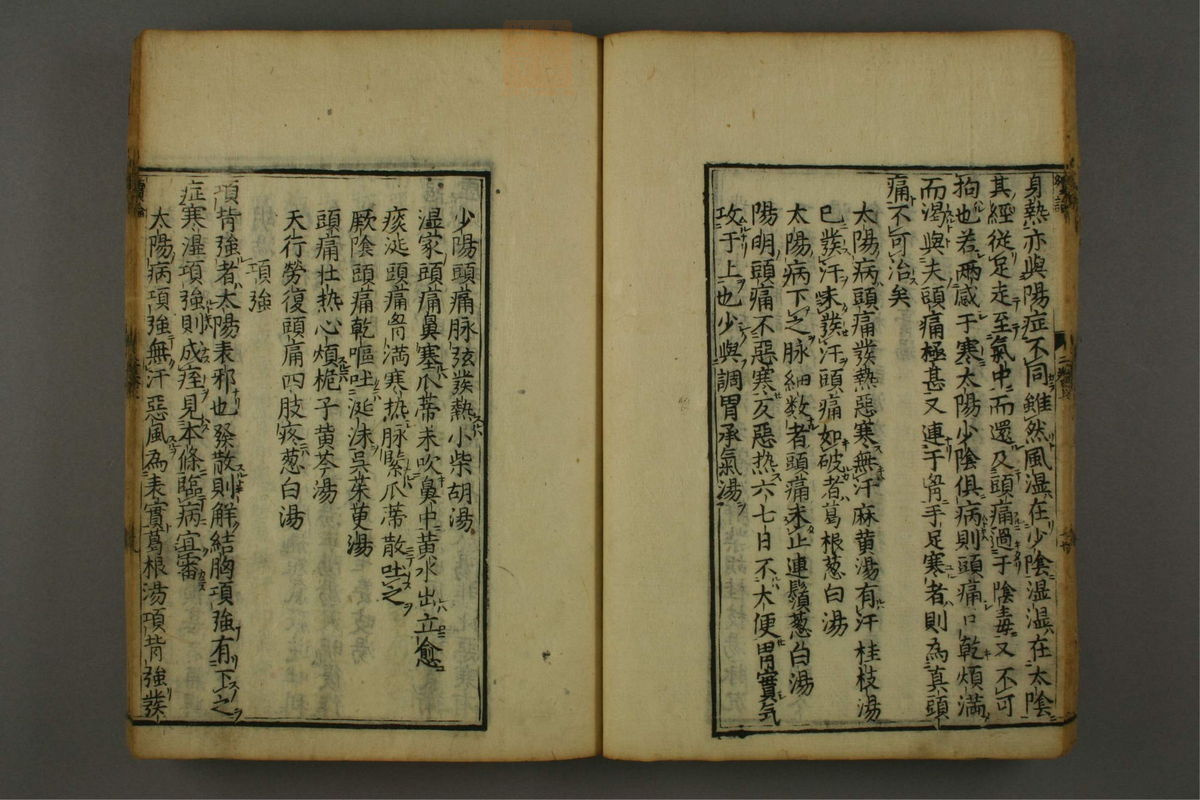 身熱亦與陽症不同雖然風温在少陰湿温在太陰
其經從足走至氣中而還及頭痛過于陰毒又不可
拘也若兩感于寒太陽少陰俱病則頭痛口乾煩満
而渇與夫頭痛極甚又連于脳手足寒者則為真頭
痛不可治矣
太陽病頭痛發熱惡寒無汗麻黄湯有汗桂枝湯
已發汗未發汗頭痛如破者葛根葱白湯
太陽病下之脉細数者頭痛未止連鬚葱白湯
陽明頭痛不惡寒反惡热六七日不大便胃實気
攻于上也少與調胃承氣湯
少陽頭痛脉弦發熱小柴胡湯
湿家頭痛鼻塞瓜蒂末吹鼻中黄水出立愈
痰涎頭痛胷満寒热脉緊瓜蒂散吐之
厥陰頭痛乾嘔吐涎沫呉茱萸湯
頭痛壮热心煩梔子黄芩湯
天行勞復頭痛四肢疼葱白湯
項強
項背強者太陽表邪也發散則解結胸項強有下之
症寒湿項強則成痓見本條臨病宜審
太陽病項強無汗惡風為表實葛根湯項背強發